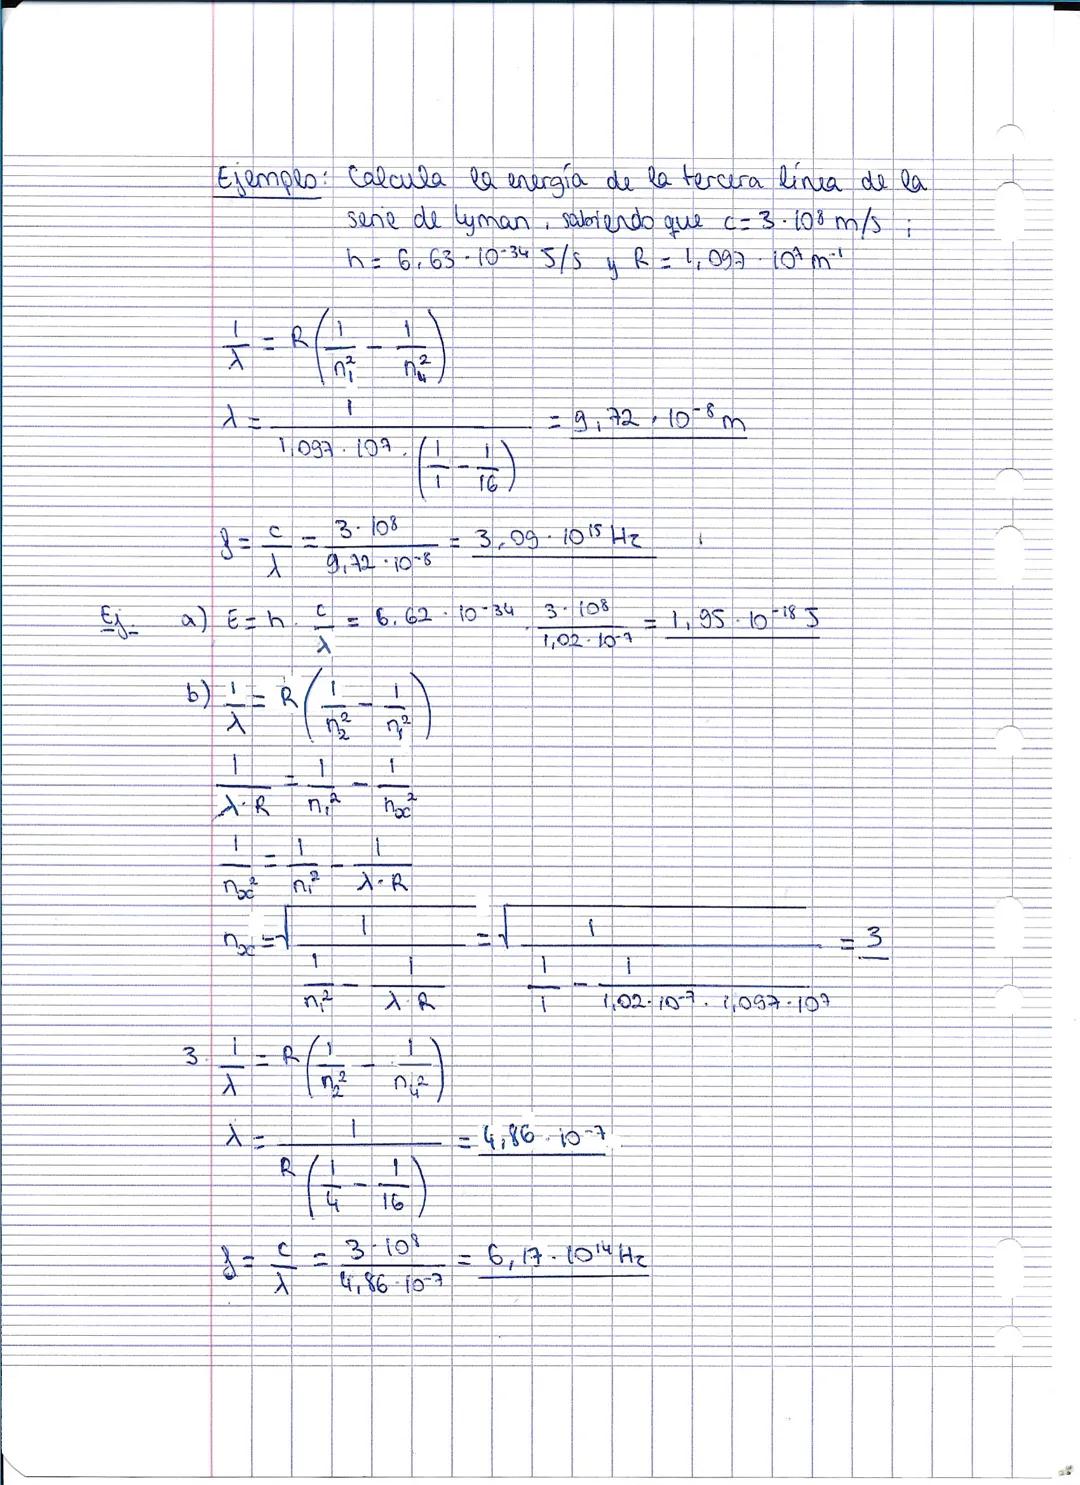 Ejemplo: Calcula la energía de la tercera línea de la
serie de Lyman, sabiendo que c = 3 · 10⁸ m/s ;
h = 6,63 · 10⁻³⁴ J/s y R = 1,097 · 10⁷ m⁻¹
1/λ = R (1/n₁² − 1/n₄²)
λ = 1 / (1,097 · 10⁷ · (1/1 − 1/16)) = 9,72 · 10⁻⁸ m
f = c/λ = 3 · 10⁸ / 9,72 · 10⁻⁸ = 3,09 · 10¹⁵ Hz
Ej. a) E = h · c/λ = 6,62 · 10⁻³⁴ · 3 · 10⁸ / 1,02 · 10⁻⁷ = 1,95 · 10⁻¹⁸ J
b) 1/λ = R (1/n₂² − 1/n₁²)
1/λ·R = 1/n₁² − 1/nx²
1/nx² = 1/n₁² − 1/λ·R
nx = √(1 / (1/n₁² − 1/λ·R)) = √(1 / (1/1 − 1/1,02 · 10⁻⁷ · 1,097 · 10⁷)) = 3
3. 1/λ = R (1/n₂² − 1/n₄²)
λ = 1 / R (1/4 − 1/16) = 4,86 · 10⁻⁷
f = c/λ = 3 · 10⁸ / 4,86 · 10⁻⁷ = 6,17 · 10¹⁴ Hz